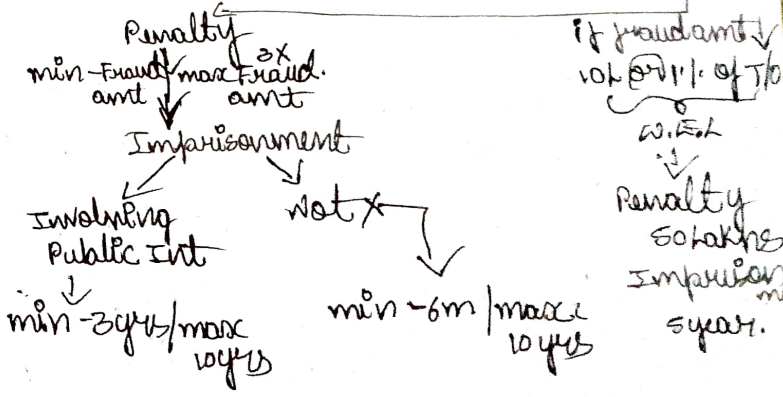 Penalty
min-Fraud amt
max 3x Fraud. amt
Imprisonment
Involving
Public Int
min-3yrs/max
10yrs
Not X
min-6m/max
10yrs
if fraud amt ↓
10L or 1% of T/O
W.E.L
Penalty
50 Lakhs
Imprison
5year.